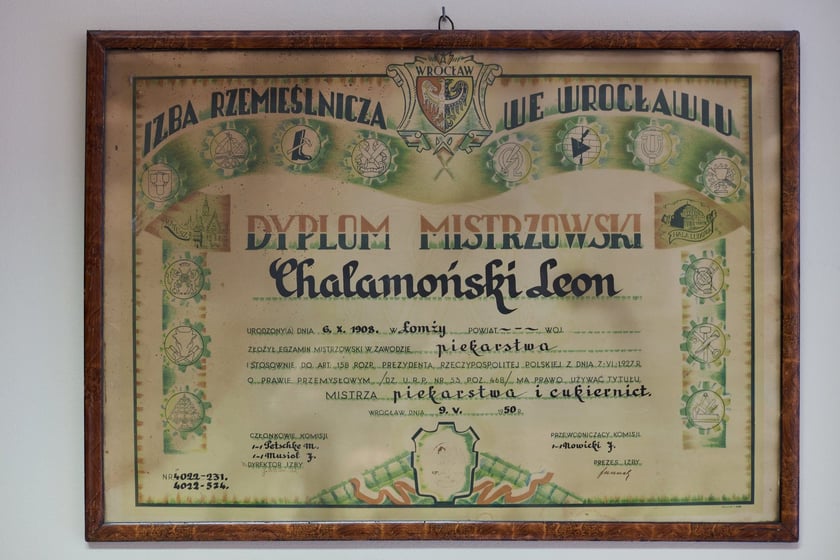 WROCŁAW
IZBA RZEMIEŚLNICZA WE WROCŁAWIU
DYPLOM MISTRZOWSKI
Chalamoński Leon
URODZONY(A) DNIA 6. X. 1908. W Łomży POWIAT ~ ~ ~ WOJ.
ZŁOŻYŁ EGZAMIN MISTRZOWSKI W ZAWODZIE piekarstwa
I STOSOWNIE DO ART. 158 ROZP. PREZYDENTA RZECZYPOSPOLITEJ POLSKIEJ Z DNIA 7-VI-1927 R.
O PRAWIE PRZEMYSŁOWYM /DZ. U. R. P. NR. 53 POZ. 468/ MA PRAWO UŻYWAĆ TYTUŁU
MISTRZA piekarstwa i cukiernict.
WROCŁAW, DNIA 9. V. 1950 R.
CZŁONKOWIE KOMISJI
Petschke M.
Musioł J.
DYREKTOR IZBY
PRZEWODNICZĄCY KOMISJI
Nowicki J.
PREZES IZBY
NR 4022-231.
4022-524.